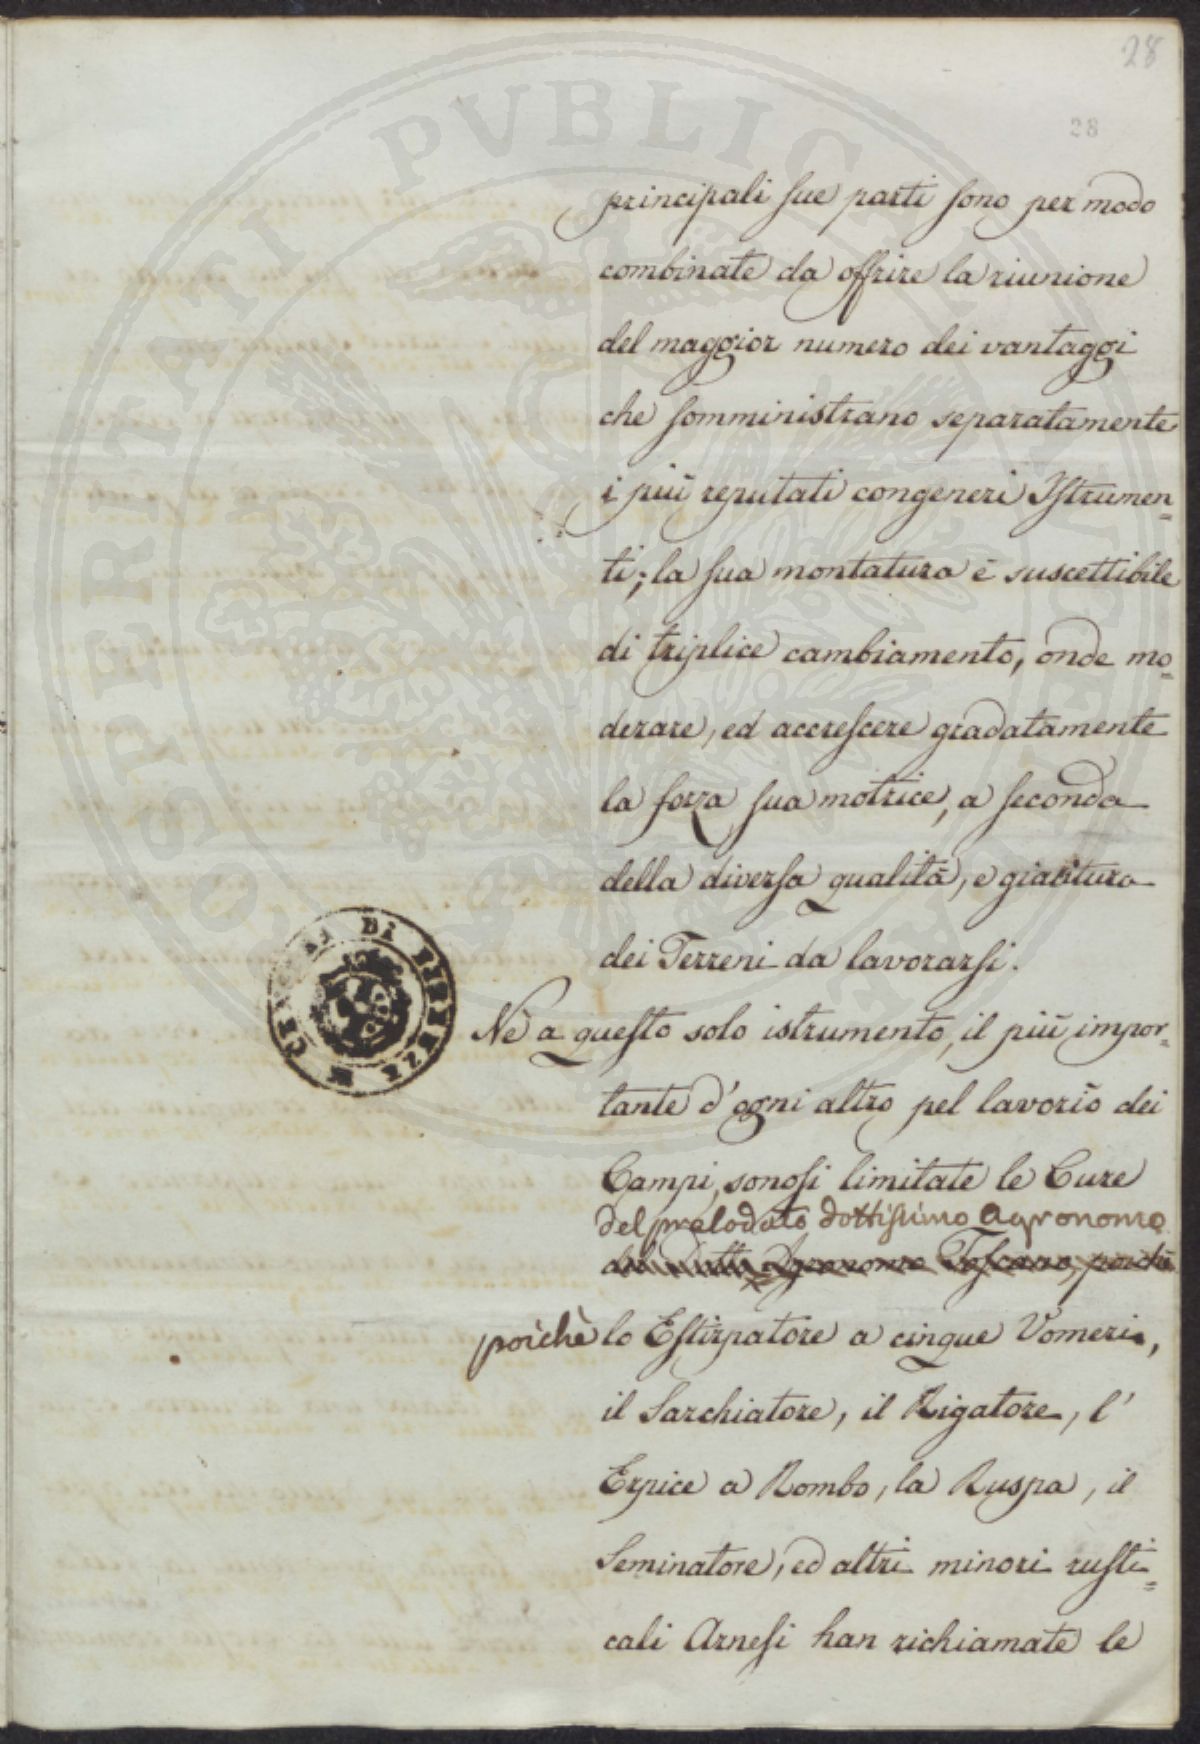 28
28
principali sue parti sono per modo
combinate da offrire la riunione
del maggior numero dei vantaggi
che somministrano separatamente
i più reputati congeneri Istrumen=
ti; la sua montatura è suscettibile
di triplice cambiamento, onde mo=
derare, ed accrescere gradatamente
la forza sua motrice, a seconda
della diversa qualità, e giacitura
dei Terreni da lavorarsi.
Nè a questo solo istrumento, il più impor=
tante d'ogni altro pel lavorio dei
Campi, sonosi limitate le Cure
del prelodato dottissimo Agronomo
Agronomo Toscano, poichè
poichè lo Estirpatore a cinque Vomeri,
il Sarchiatore, il Rigatore, l'
Erpice a Rombo, la Ruspa, il
Seminatore, ed altri minori rusti=
cali Arnesi han richiamate le
PROSPERITATI PVBLICAE
DI FIRENZE